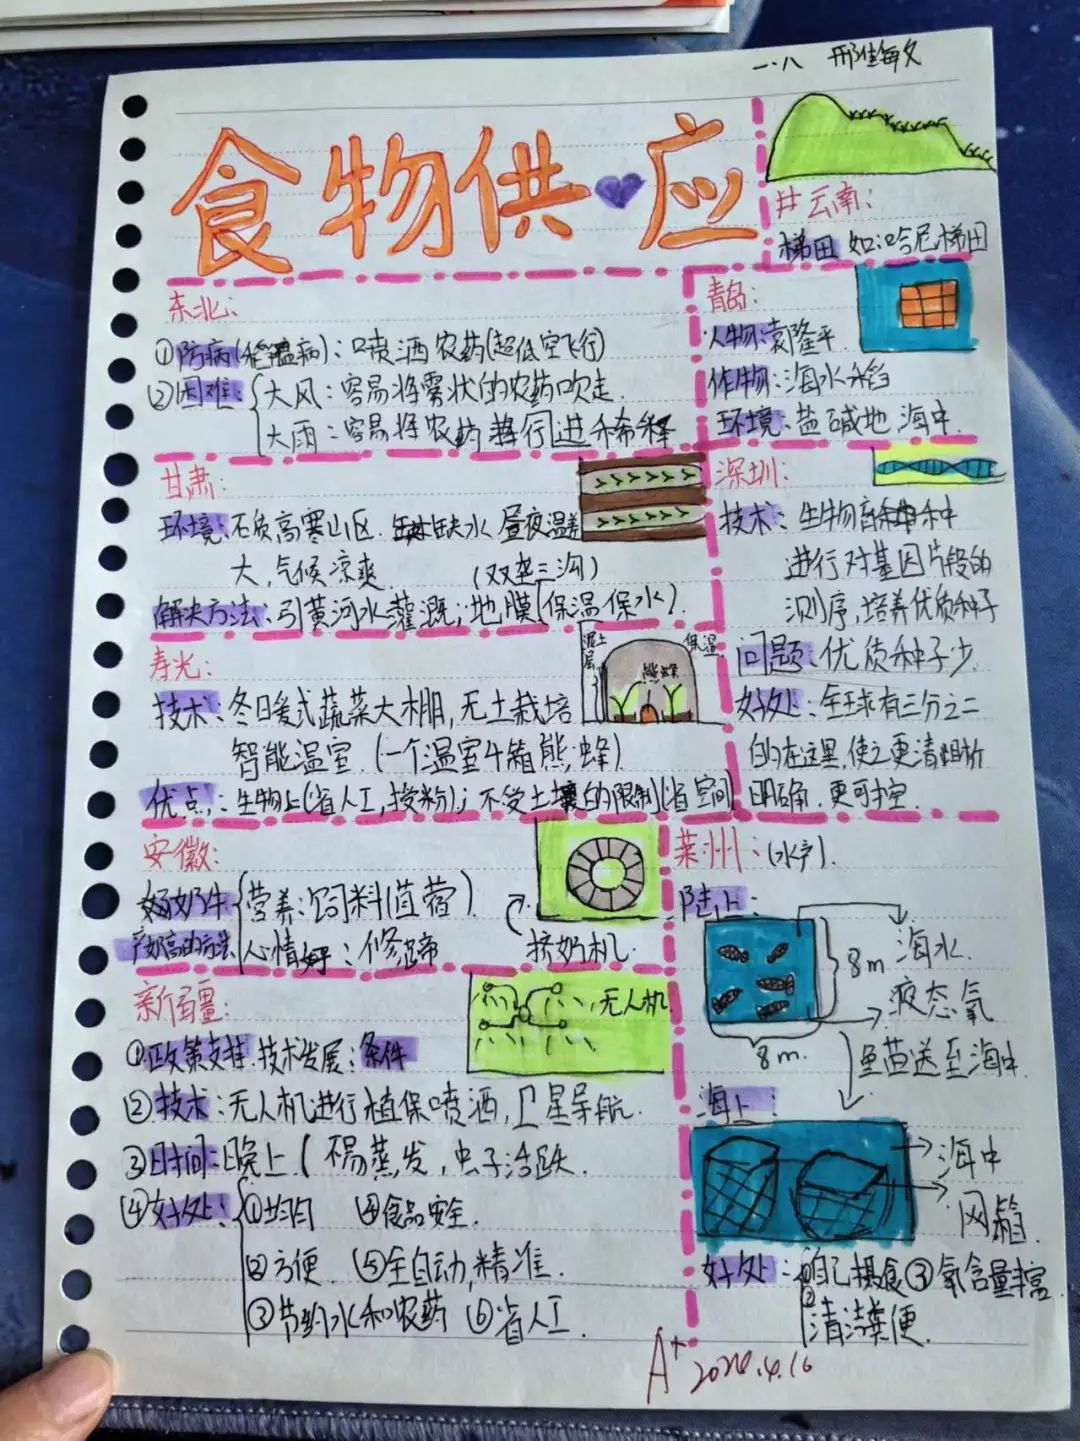 一.八 邢佳每文
食物供应
#云南:
梯田 如:哈尼梯田
东北:
①防病(稻瘟病):喷洒农药(超低空飞行)
②困难:大风:容易将雾状的农药吹走.
大雨:容易将农药进行稀释
青岛:
人物:袁隆平
作物:海水稻
环境:盐碱地 海中.
甘肃:
环境:石质高寒山区. 缺水 昼夜温差
大,气候凉爽. (双垄三沟)
解决方法:引黄河水灌溉;地膜(保温保水).
深圳:
技术:生物育种
进行对基因片段的
测序,培养优质种子
问题:优质种子少.
好处:全球有三分之二
的在这里,使之更清晰
明确.更可控.
寿光:
技术:冬日暖式蔬菜大棚,无土栽培
智能温室.(一个温室4箱熊蜂)
优点:生物上(省人工,授粉);不受土壤的限制(省空间)
混土层
保温
熊蜂
安徽:
奶牛产奶高的方法
营养:饲料(苜蓿).
心情好:修蹄
挤奶机.
莱州:(水产).
陆上:
8m
8m.
海水.
液态氧
鱼苗送至海中.
海上:
海中
网箱.
好处:①自己摄食③氧含量丰富.
②清洁粪便.
新疆:
无人机
①政策支持.技术发展:条件
②技术:无人机进行植保喷洒,卫星导航.
③时间:晚上(不易蒸发,虫子活跃.
④好处:①均匀 ④食品安全.
②方便. ⑤全自动,精准.
③节约水和农药 ⑥省人工.
A+ 2024.4.16